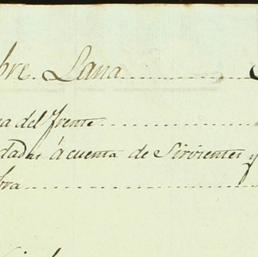 bre Lana
a del frente
dadas á cuenta de Sirvientes y
bra